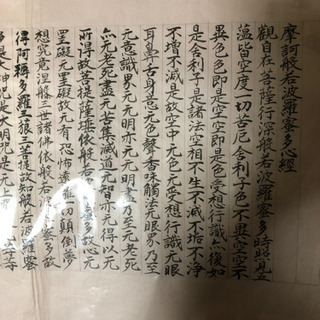 摩訶般若波羅蜜多心經
觀自在菩薩行深般若波羅蜜多時照見五
蘊皆空度一切苦厄舍利子色不異空空不
異色色即是空空即是色受想行識亦復如
是舍利子是諸法空相不生不滅不垢不净
不增不滅是故空中无色无受想行識无眼
耳鼻舌身意无色聲香味觸法无眼界乃至
无意識界无无明亦无无明盡乃至无老死
亦无老死盡无苦集滅道无智亦无得以无
所得故菩提薩埵依般若波羅蜜多故心无
罣礙无罣礙故无有恐怖遠離一切顛倒夢
想究竟涅般三世諸佛依般若波羅蜜多故
得阿耨多羅三藐三菩提故知般若波羅蜜
多是大神咒是大明咒是无上